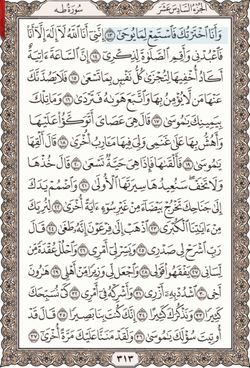 سُورَةُ طه
الجُزْءُ السَّادِسَ عَشَرَ
وَأَنَا ٱخْتَرْتُكَ فَٱسْتَمِعْ لِمَا يُوحَىٰٓ ١٣ إِنَّنِىٓ أَنَا ٱللَّهُ لَآ إِلَٰهَ إِلَّآ أَنَا۠
فَٱعْبُدْنِى وَأَقِمِ ٱلصَّلَوٰةَ لِذِكْرِىٓ ١٤ إِنَّ ٱلسَّاعَةَ ءَاتِيَةٌ
أَكَادُ أُخْفِيهَا لِتُجْزَىٰ كُلُّ نَفْسٍۭ بِمَا تَسْعَىٰ ١٥ فَلَا يَصُدَّنَّكَ
عَنْهَا مَن لَّا يُؤْمِنُ بِهَا وَٱتَّبَعَ هَوَىٰهُ فَتَرْدَىٰ ١٦ وَمَا تِلْكَ
بِيَمِينِكَ يَٰمُوسَىٰ ١٧ قَالَ هِىَ عَصَاىَ أَتَوَكَّؤُا۟ عَلَيْهَا
وَأَهُشُّ بِهَا عَلَىٰ غَنَمِى وَلِىَ فِيهَا مَـَٔارِبُ أُخْرَىٰ ١٨ قَالَ أَلْقِهَا
يَٰمُوسَىٰ ١٩ فَأَلْقَىٰهَا فَإِذَا هِىَ حَيَّةٌ تَسْعَىٰ ٢٠ قَالَ خُذْهَا
وَلَا تَخَفْ سَنُعِيدُهَا سِيرَتَهَا ٱلْأُولَىٰ ٢١ وَٱضْمُمْ يَدَكَ
إِلَىٰ جَنَاحِكَ تَخْرُجْ بَيْضَآءَ مِنْ غَيْرِ سُوٓءٍ ءَايَةً أُخْرَىٰ ٢٢ لِنُرِيَكَ
مِنْ ءَايَٰتِنَا ٱلْكُبْرَى ٢٣ ٱذْهَبْ إِلَىٰ فِرْعَوْنَ إِنَّهُۥ طَغَىٰ ٢٤ قَالَ
رَبِّ ٱشْرَحْ لِى صَدْرِى ٢٥ وَيَسِّرْ لِىٓ أَمْرِى ٢٦ وَٱحْلُلْ عُقْدَةً مِّن
لِّسَانِى ٢٧ يَفْقَهُوا۟ قَوْلِى ٢٨ وَٱجْعَل لِّى وَزِيرًا مِّنْ أَهْلِى ٢٩ هَٰرُونَ
أَخِى ٣٠ ٱشْدُدْ بِهِۦٓ أَزْرِى ٣١ وَأَشْرِكْهُ فِىٓ أَمْرِى ٣٢ كَىْ نُسَبِّحَكَ
كَثِيرًا ٣٣ وَنَذْكُرَكَ كَثِيرًا ٣٤ إِنَّكَ كُنتَ بِنَا بَصِيرًا ٣٥ قَالَ قَدْ
أُوتِيتَ سُؤْلَكَ يَٰمُوسَىٰ ٣٦ وَلَقَدْ مَنَنَّا عَلَيْكَ مَرَّةً أُخْرَىٰٓ ٣٧
٣١٣